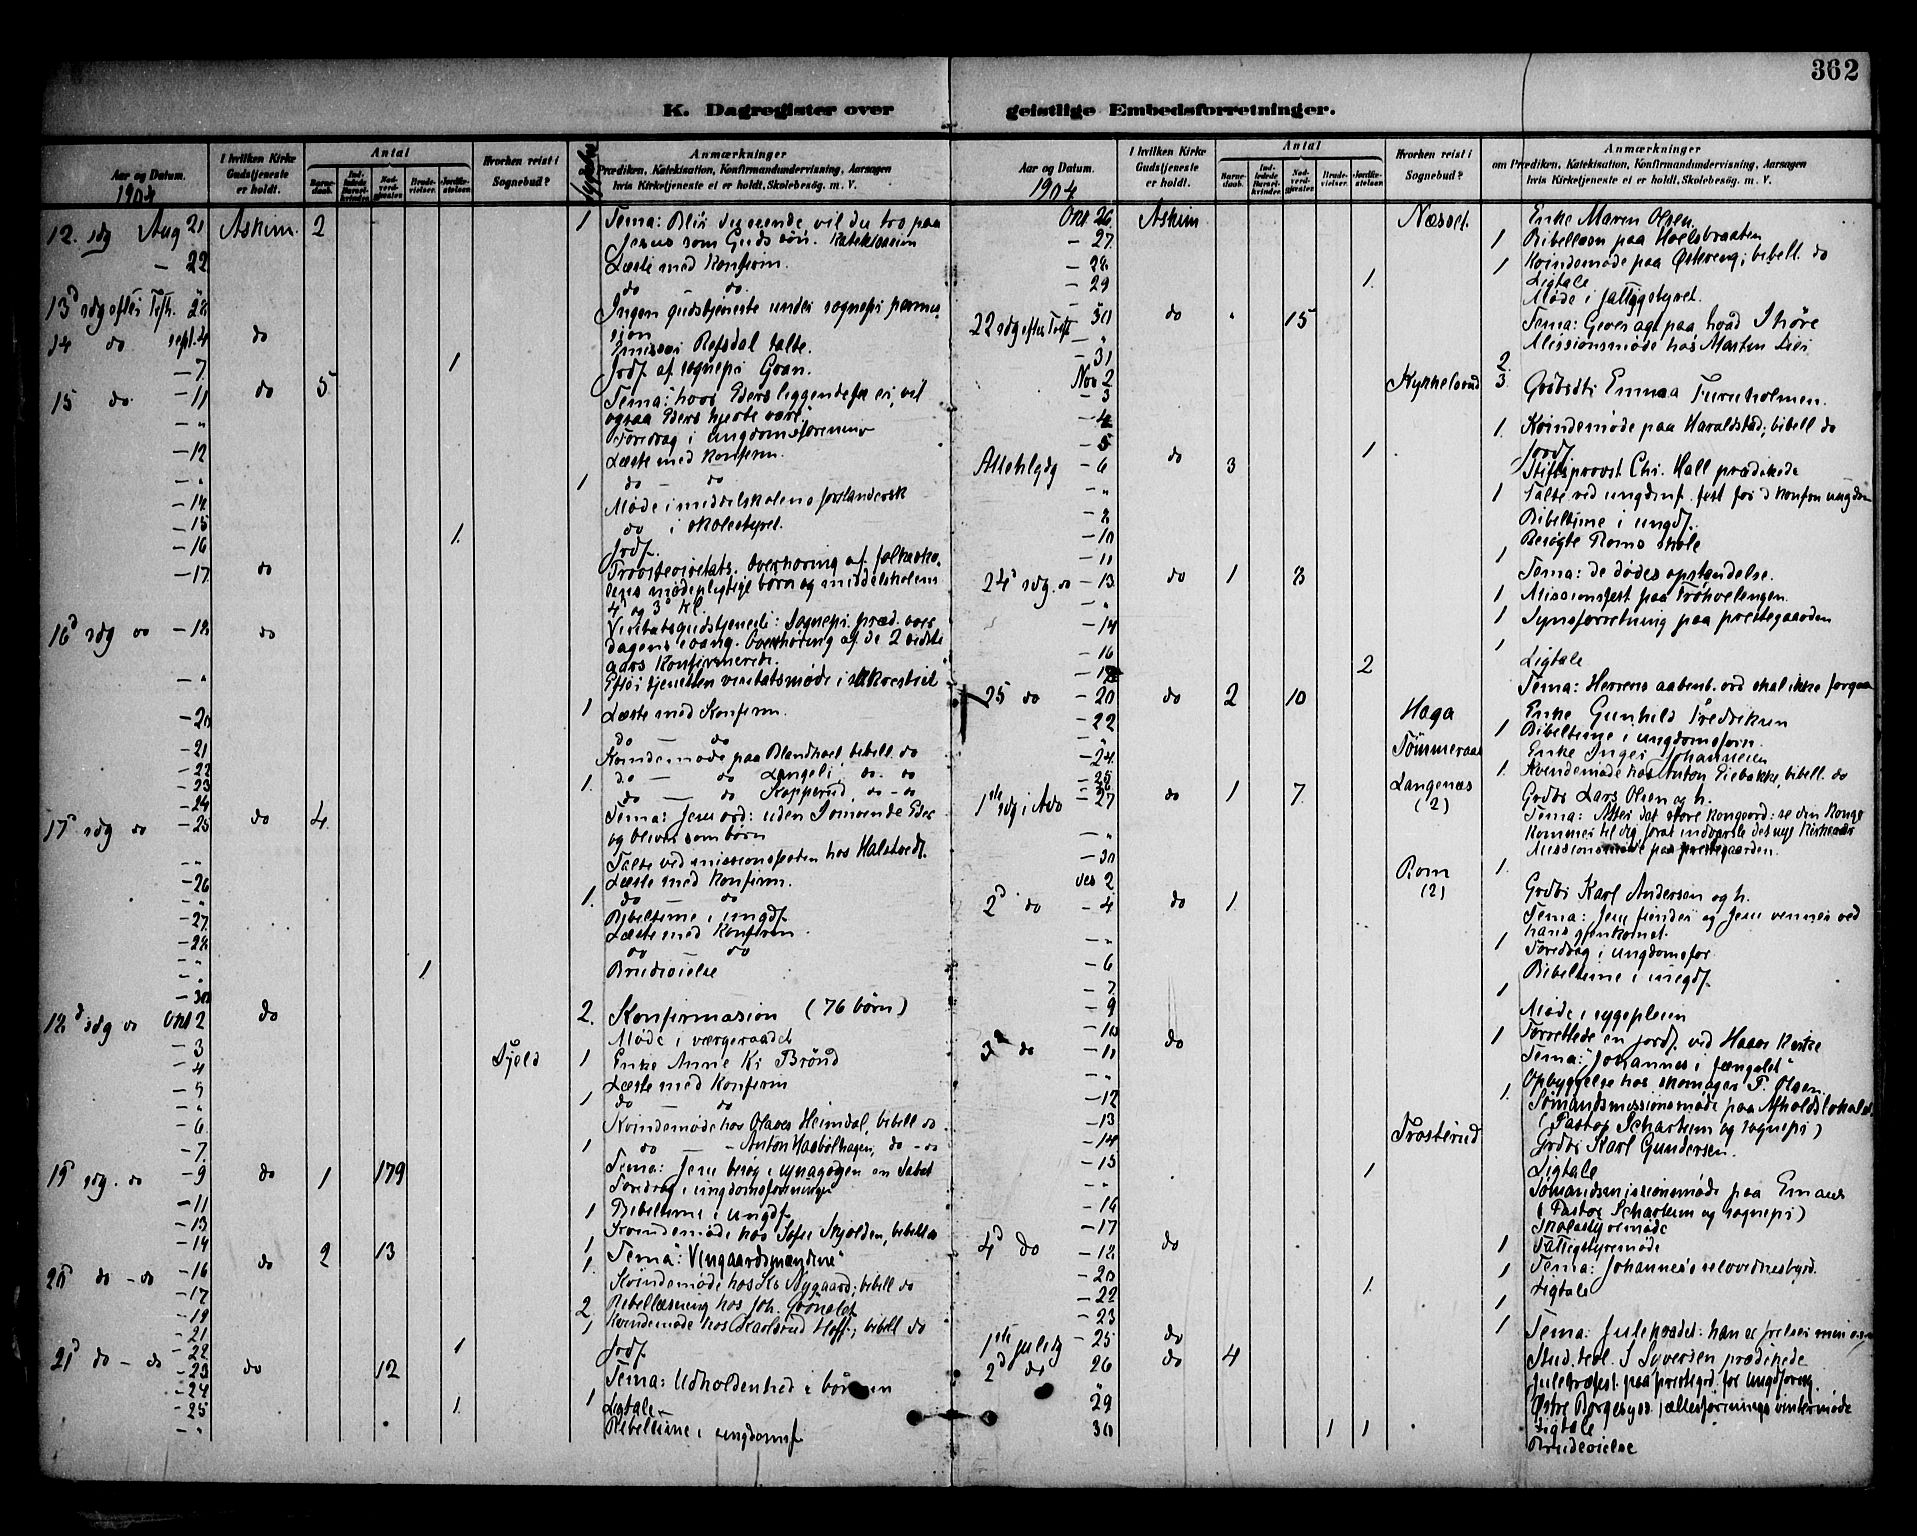 362
K. Dagregister over
geistlige Embedsforretninger.
Aar og Datum.
1904
I hvilken Kirke Gudstjeneste er holdt.
Antal
Barnedaab.
Indledede Barselkvinder.
Nadverdgjæster.
Brudevielser.
Jordfæstelser.
Hvorhen reist i Sognebud?
Anmærkninger
om Prædiken, Katekisation, Konfirmandundervisning, Aarsagen
hvis Kirketjeneste ei er holdt, Skolebesøg. m. V.
12. sdg Aug 21 Askim. 2 1 Tema: Blir du seende, vil du tro paa
Jesus som Guds søn. Katekisasion
- 22 Læste med Konfirm.
do do
13d sdg efter Tfh. 28 Ingen gudstjeneste under sognepr permis
sion
14 do sept. 4 do Emissær Refsdal talte.
- 7 1 Jrdf. af sognepr Gran.
15 do - 11 do 5 Tema: hvor Eders liggendefæ er, vil
ogsaa Eders hjerte være.
- " Foredrag i ungdomsforening
- 12 Læste med Konfirm.
- " 1 do - do
- 14 Møde i middelskolens forstandersk
- 15 do i skolestyret.
- 16 1. Jrdf.
- 17 do Provstevisitats. Overhøring af folkesko-
lens mødepligtige børn og middelskolens
4d og 3d kl.
16d sdg do - 18 do Visitatsgudstjeneste: Sognepr. præd. over
dagens evang. Overhøring af de 2 sidste
aars Konfirmerede.
- " Efter tjenesten visitatsmøde i sakrestiet
- 20 1 Læste med Konfirm.
- 21 do - do
- 22 Kvindemøde paa , bibell. do
- 23 do - do Langeli do. do
- 24 1. do - do Kopperud do - do
17d sdg do - 25 do 4. Tema: Jesu ord: uden I omvende Eder
og bliver som børn
- " Talte ved missionsfesten hos Halstvedt.
- 26 Læste med Konfirm.
- " 1. do do
- 27 Bibeltime i ungdf.
- 28 Læste med Konfirm.
- " do do
- 30 1 Brudevielse
18d sdg do Okt 2 do 2. Konfirmasion (76 børn)
- 3 Møde i værgeraadet
- 4 1 Enke Anne Kr Brønd
- 5 Læste med Konfirm
- " 1 do - do
- 6 Kvindemøde hos Olaves Heimdal, bibell do
- 7. 1 do - - Anton Haabølhagen, do - do
19d sdg. do - 9 do 1 179 Tema: Jesu besøg i synagogen en sabat
Foredrag i ungdomsforeninge
- 11 1 Bibeltime i ungdf
- 13 Kvindemøde hos Sofie Skjolden, bibell do
- 14 1
20d do - do - 16 do 2 13 1. Tema: "Vingaardsmændene"
- 17 Kvindemøde hos Nygaard; bibell do
- 19 2 Bibellæsning hos Joh. Grønslet
- 21 1 Kvindemøde hos Karlsrud Hoff; bibell do
- 22 1 Jrdf.
21d do - do - 23 do 12 Tema: Udholdenhed i bønnen
- 24 1
- 25 1. Ligtale
- " Bibeltime i ungdomsf
Aar og Datum.
1904
I hvilken Kirke Gudstjeneste er holdt.
Antal
Barnedaab.
Indledede Barselkvinder.
Nadverdgjæster.
Brudevielser.
Jordfæstelser
Hvorhen reist i Sognebud?
Anmærkninger
om Prædiken, Katekisation, Konfirmandundervisning, Aarsagen
hvis Kirketjeneste ei er holdt, Skolebesøg. m. V.
Okt 26 Askim Næsset. Enke Maren Olsen
- 27 1 Bibellæsn paa Hoelsbraaten
- 28 1 Kvindemøde paa Østereng; bibell. do
- 29 1. Ligtale
Møde i fattigstyret.
22 sdg efter Tfh 30 do 15 Tema: Giver agt paa hvad I høre
- " Missionsmøde hos Marten Lier
- 31 2.
Nov 2 Kykkelsrud 3. Grdbrdtr Emma Furuholmen.
- 3
- 4 1. Kvindemøde paa Haraldstad; bibell do
- 5 1 Jordf.
Allehlgdg - 6 do 3 Stiftsprovst Chr. Hall prædikede
- " 1 Talte ved ungdmsf. fest for d konfirm ungdom
- 8 Bibeltime i ungdf.
- 10 Besøgte Roms skole
- 11 1
24d sdg. do - 13 do 1 8 Tema: de dødes opstandelse.
- " 1 Missionsfest paa Trøhvelengen.
- 14 1 Synsforretning paa prestegaarden
- 16 1
2 Ligtale
25 do - 20 do 2 10 Tema: Herrens aabenb. ord skal ikke forgaa
- 22 Haga Enke Gunhild Fredriksen
- " 1 Bibeltime i ungdomsforn.
- 24 Tømmeraas Enke Inger Johannesen
- 25 1. Kvindemøde hos Anton Eiebakke, bibell. do
1ste sdg i Adv - 27 do 1 7. Langenæs (2) Grdbr Lars Olsen og h.
Tema: Atter det store kongeord: se din Konge
kommer til dig, forat indvarsle det nye Kirkeaar
- " Missionsmøde paa prestegaarden.
- 30 1.
Des 2 Rom (2) Grdbr Karl Andersen og h.
2d do - 4 do 1. Tema: Jesu fiender og Jesu venner ved
hans gjenkomst.
- " 1 Foredrag i ungdomsfor
- 6 Bibeltime i ungdf.
- 7 1
- 9 Møde i sygepleien
- 10 1 Forrettede en jordf. ved Haaøs Kirke
3d do - 11 do Tema: "Johannes i fængslet"
- " Opbyggelse hos skomager P. Olsen
- 12 1. Sømandsmissionsmøde paa Afholdslokalet
- 13 (Pastor Schartum og sognepr)
- 14 Trosterud Grdbr Karl Gundersen.
- 15 1 Ligtale
- " Sømandsmissionsmøde paa Emaus
- 16 (Pastor Schartum og sognepr)
- 17 Skolestyremøde
4d do - 18 do 1 Fattigstyremøde
- 20 1 Tema: Johannes's selvvidnesbyrd.
- 22 1. Ligtale
- 23 1
1ste juledg - 25 do 1 Tema: Julepraadet: han er frelser min
2d do 26 do 4 Stud. teol. S Syversen prædikede
" Juletræfest paa prestegrd for ungdforng
29 Østre Borgesyss. vintermøde
30 1 1 Ligtale
Brudevielse